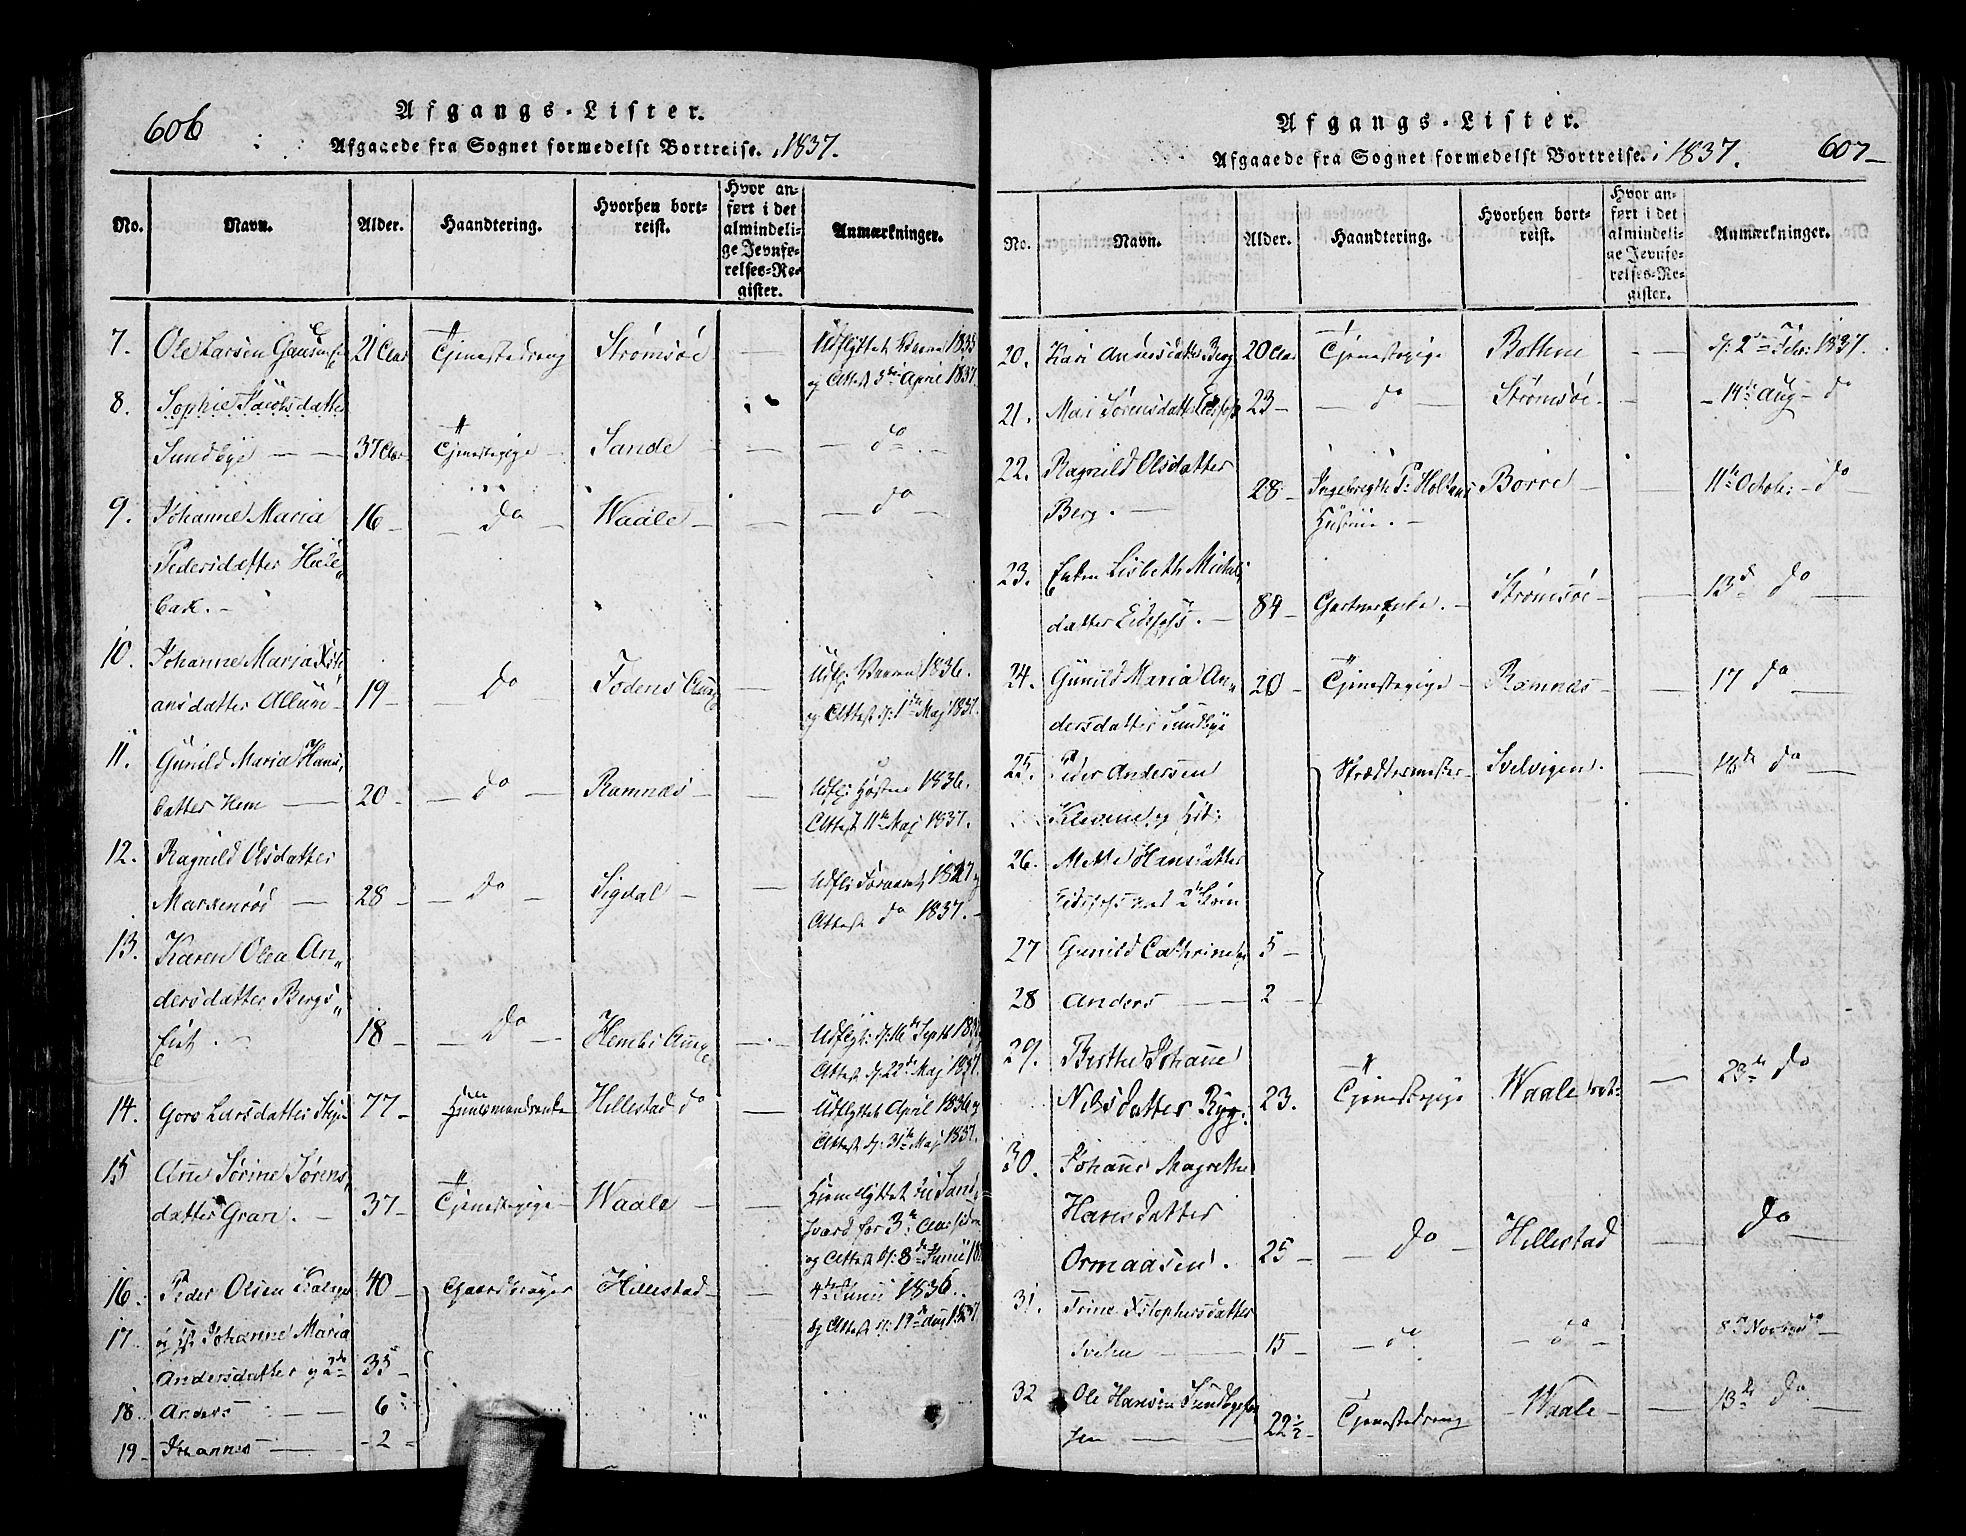 606
Afgangs-Lister.
Afgaaede fra Sognet formedelst Bortreise. i 1837.
No.
Navn.
Alder.
Haandtering.
Hvorhen bort-
reist.
Hvor an-
ført i det
almindeli-
ge Jevnfø-
relses-Re-
gister.
Anmærkninger.
7. Ole Larsen 21 Aar Tjenestedreng Strømsøe — Udflyttet 1835
og Attest 3die April 1837.
8. Sophie Jacobsdatter
Sundbye — — 37 Aar Tjenestepige — Sande — — — do —
9. Johanne Maria 16 — — do — Waale — — — do —
Pedersdatter
bak. —
10. Johanne Maria
ansdatter 19 — — do — Fodens — Udfl: 1836.
og Attest d: 1ste Maj 1837.
11. Gunild Maria Hans,
datter Hem — 20 — — do — Ramnæs — — Udfl: Høsten 1836.
Attest 11te Maj 1837.
12. Ragnild Olsdatter
— 28 — — do — Sigdal — — Udfl: 1827 og
Attest do 1837. —
13. Karen Olea An„
dersdatter Bergs„
18 — — do — — Udflyt: d: 16de Septb
Attest d: 22de Maj 1837.
14. Goro Larsdatter 77 — Huusmandsenke Hillestad do — Udflyttet April 1836 og
Attest d: 31te Maj 1837.
15 Ane Sørine Sørens,
datter Gran. — 37 — Tjenestepige — Waale — — for 3de
og Attest d: 8de Junii
16. Peder Olsen 40 — Gaardbruger Hillestad — — 4de Junii 1836.
og Attest d: 19de Aug 1837
17. Johanne Maria
Andersdatter og 2de 35 —
18. Anders — — 6 —
19 — Johannes — — 2 —
Afgangs-Lister.
Afgaaede fra Sognet formedelst Bortreise. i 1837.
607 —
No.
Navn.
Alder.
Haandtering.
Hvorhen bort-
reist.
Hvor an-
ført i det
almindeli-
ge Jevnfø-
relses-Re-
gister.
Anmærkninger.
20. Kari Andersdatter Berg 20 Aar Tjenestepige Bothne — — d: 2den Febr: 1837.
21. Mari Sørensdatter Eidsfos 23 — — do — Strømsøe — — 14de Aug — do
22. Ragnild Olsdatter
Berg. — 28 — Ingebregth P: Holtans Borre — — 11te Octob: — do —
Hustrue. —
23. Enken Lisbeth Michels
datter Eidsfos. — 84 — Strømsøe — — 13de do —
24. Gunild Maria An„ 20 — Tjenestepige — Ramnæs — — 17 do —
dersdatter Sundbye
25. Peder Andersen Svelvigen. — 18de do —
Klevene og
26. Mette Hansdatter
Eidsfos med 2de Børn
27 Gunild Cathrine 5 —
28 Anders — — 2 —
29. Birthe Johanne
Nilsdatter Ryg: 23. Tjenestepige Waale — 23de do
30. Johanne Magrethe
Hansdatter
Ormaasen. 25 — — do — Hillestad — do
31. Trine Xstophersdatter
— 15 — — do — do — 8de Novbr do —
32 Ole Hansen Sundbyefos
sen — — 22½ — Tjenestedreng — Waale — — 13de do —